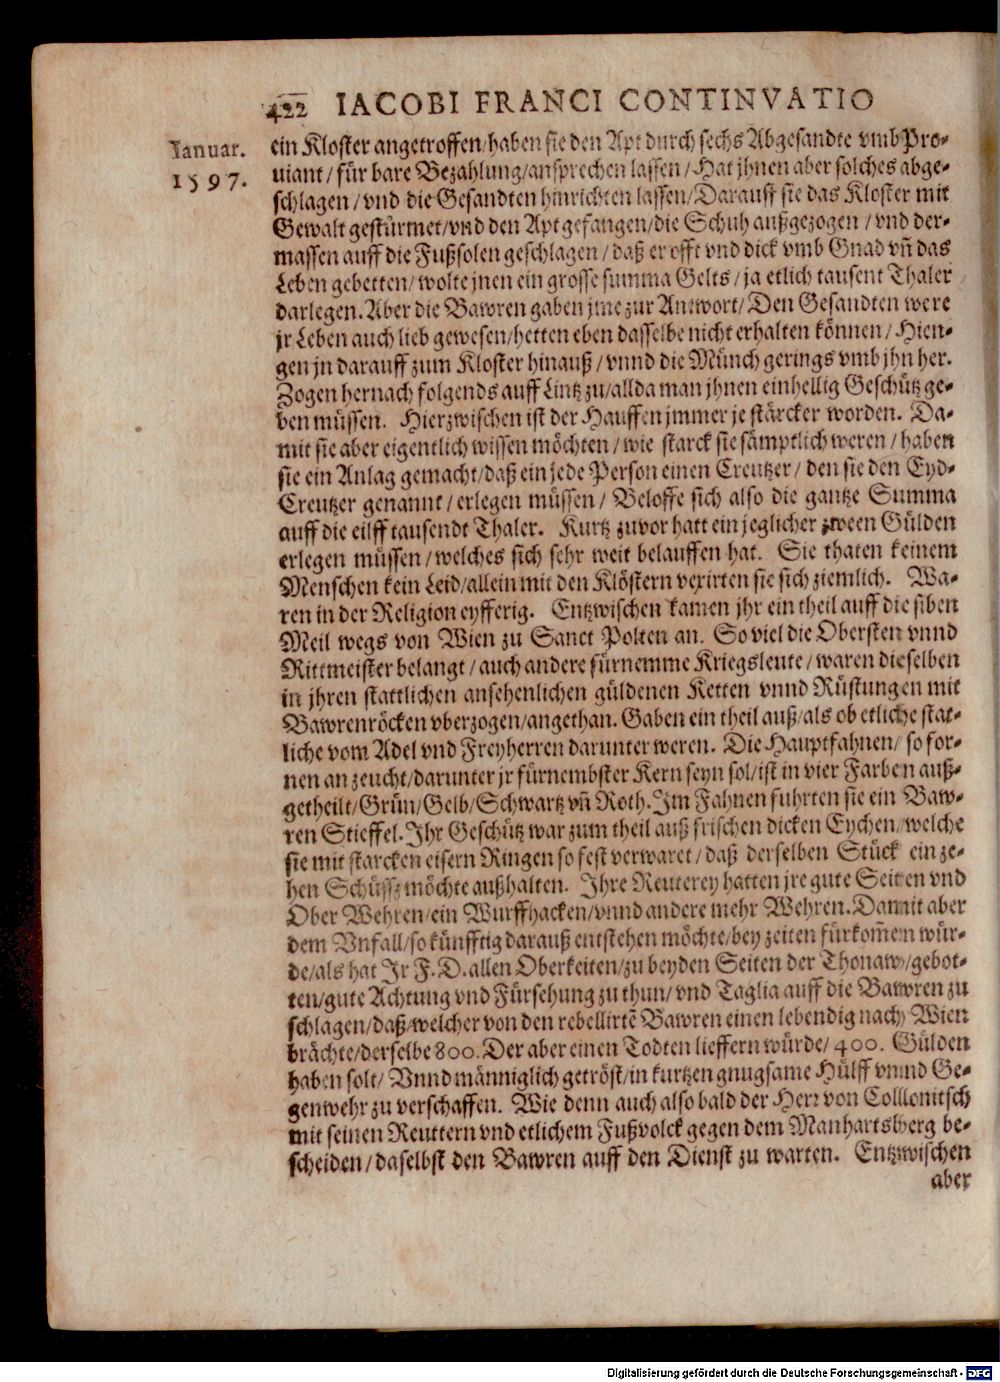 422 IACOBI FRANCI CONTINVATIO
Ianuar.
1597.
ein Kloster angetroffen/haben sie den Apt durch sechs Abgesandte vmb Pro-
uiant/für bare Bezahlung/ansprechen lassen/Hat jhnen aber solches abge-
schlagen/vnd die Gesandten hinrichten lassen/Darauff sie das Kloster mit
Gewalt gestürmet/vnd den Apt gefangen/die Schuh außgezogen/vnd der-
massen auff die Fußsolen geschlagen/daß er offt vnd dick vmb Gnad vñ das
Leben gebetten/wolte jnen ein grosse summa Gelts/ja etlich tausent Thaler
darlegen. Aber die Bawren gaben jme zur Antwort/Den Gesandten were
jr Leben auch lieb gewesen/hetten eben dasselbe nicht erhalten können/Hien-
gen jn darauff zum Kloster hinauß/vnnd die Münch gerings vmb jhn her.
Zogen hernach folgends auff Lintz zu/allda man jhnen einhellig Geschütz ge-
ben müssen. Hierzwischen ist der Hauffen jmmer je stärcker worden. Da-
mit sie aber eigentlich wissen möchten/wie starck sie sämptlich weren/haben
sie ein Anlag gemacht/daß ein jede Person einen Creutzer/den sie den Eyd-
Creutzer genannt/erlegen müssen/Beloffe sich also die gantze Summa
auff die eilff tausendt Thaler. Kurtz zuvor hatt ein jeglicher zween Gülden
erlegen müssen/welches sich sehr weit belauffen hat. Sie thaten keinem
Menschen kein Leid/allein mit den Klöstern vexirten sie sich ziemlich. Wa-
ren in der Religion eyfferig. Entzwischen kamen jhr ein theil auff die siben
Meil wegs von Wien zu Sanct Polten an. So viel die Obersten vnnd
Rittmeister belangt/auch andere fürnemme Kriegsleute/waren dieselben
in jhren stattlichen ansehenlichen güldenen Ketten vnnd Rüstungen mit
Bawrenröcken vberzogen/angethan. Gaben ein theil auß/als ob etliche stat-
liche vom Adel vnd Freyherren darunter weren. Die Hauptfahnen/so for-
nen an zeucht/darunter jr fürnembster Kern seyn sol/ist in vier Farben auß-
getheilt/Grün/Gelb/Schwartz vñ Roth. Im Fahnen fuhrten sie ein Baw-
ren Stieffel. Ihr Geschütz war zum theil auß frischen dicken Eychen/welche
sie mit starcken eisern Ringen so fest verwaret/daß derselben Stück ein ze-
hen Schüssz möchte außhalten. Ihre Reuterey hatten jre gute Seiten vnd
Ober Wehren/ein Wurffhacken/vnnd andere mehr Wehren. Damit aber
dem Vnfall/so künfftig darauß entstehen möchte/bey zeiten fürkom̃en wür-
de/als hat Ir F.D. allen Oberkeiten/zu beyden Seiten der Thonaw/gebot-
ten/gute Achtung vnd Fürsehung zu thun/vnd Taglia auff die Bawren zu
schlagen/daß/welcher von den rebellirtẽ Bawren einen lebendig nach Wien
brächte/derselbe 800. Der aber einen Todten lieffern würde/400. Gülden
haben solt/Vnnd männiglich getröst/in kurtzen gnugsame Hülff vnnd Ge-
genwehr zu verschaffen. Wie denn auch also bald der Herr von Colllonitsch
mit seinen Reuttern vnd etlichem Fußvolck gegen dem Manhartsberg be-
scheiden/daselbst den Bawren auff den Dienst zu warten. Entzwischen
aber
Digitalisierung gefördert durch die Deutsche Forschungsgemeinschaft - DFG